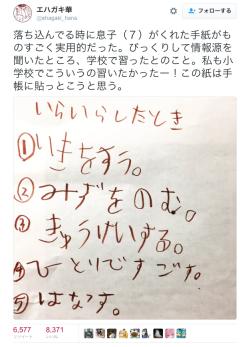 エハガキ華
@ehagaki_hana
フォローする
落ち込んでる時に息子（７）がくれた手紙がも
のすごく実用的だった。びっくりして情報源を
聞いたところ、学校で習ったとのこと。私も小
学校でこういうの習いたかったー！この紙は手
帳に貼っとこうと思う。
いらいらしたとき
①いきをすう。
②みずをのむ。
③きゅうけいする。
④ひとりですごす。
⑤はなす。
6,577
リツイート
8,371
いいね